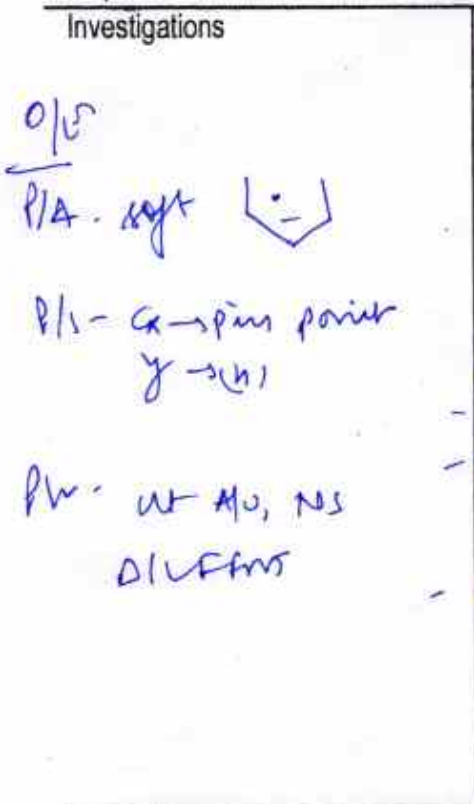 Investigations
O/E
P/A - soft
P/S - Cx → pin point
V → (N)
P/V - Ut A/V, NS
B/L FFNT